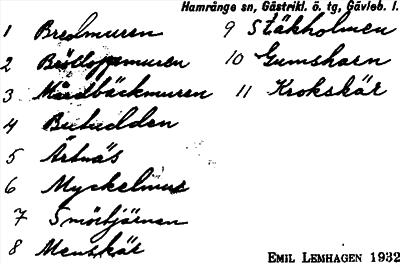 Hamrånge sn, Gästrikl. ö. tg, Gävleb. l.
1 Bredmuren
2 Bröllopsmuren
3 Mårdbäckmuren
4
5 Ärtnäs
6 Myckelmur
7 Smörtjärnen
8 Menskär
9 Stäkholmen
10 Gumsharn
11 Krokskär
EMIL LEMHAGEN 1932